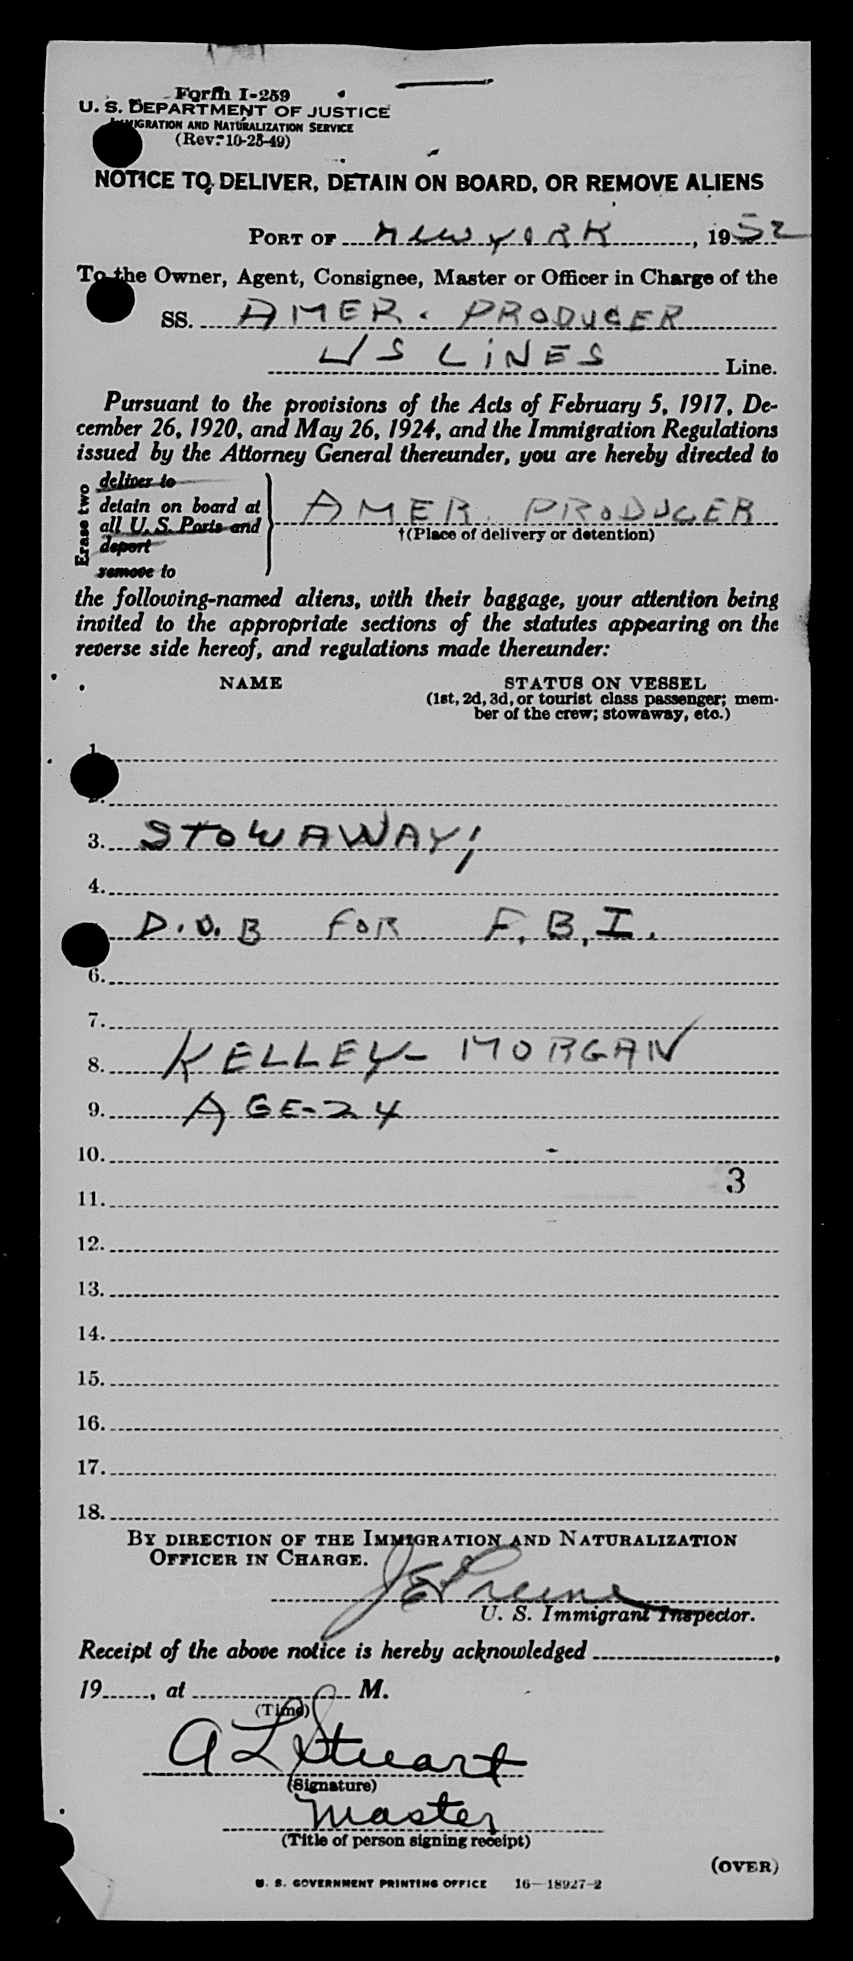 Form I-259
U. S. DEPARTMENT OF JUSTICE
IMMIGRATION AND NATURALIZATION SERVICE
(Rev. 10-25-49)
NOTICE TO DELIVER, DETAIN ON BOARD, OR REMOVE ALIENS
PORT OF NEW YORK, 1952
To the Owner, Agent, Consignee, Master or Officer in Charge of the
SS. AMER. PRODUCER
US LINES Line.
Pursuant to the provisions of the Acts of February 5, 1917, De-
cember 26, 1920, and May 26, 1924, and the Immigration Regulations
issued by the Attorney General thereunder, you are hereby directed to
Erase two
deliver to
detain on board at
all U. S. Ports and
deport
remove to
AMER. PRODUCER
†(Place of delivery or detention)
the following-named aliens, with their baggage, your attention being
invited to the appropriate sections of the statutes appearing on the
reverse side hereof, and regulations made thereunder:
NAME STATUS ON VESSEL
(1st, 2d, 3d, or tourist class passenger; mem-
ber of the crew; stowaway, etc.)
1.
2.
3. STOWAWAY;
4.
D.O.B FOR F.B.I.
6.
7.
8. KELLEY - MORGAN
9. AGE-24
10.
3
11.
12.
13.
14.
15.
16.
17.
18.
BY DIRECTION OF THE IMMIGRATION AND NATURALIZATION
OFFICER IN CHARGE.
U. S. Immigrant Inspector.
Receipt of the above notice is hereby acknowledged ,
19 , at M.
(Time)
A L Stuart
(Signature)
Master
(Title of person signing receipt)
(OVER)
U. S. GOVERNMENT PRINTING OFFICE 16—18927-2